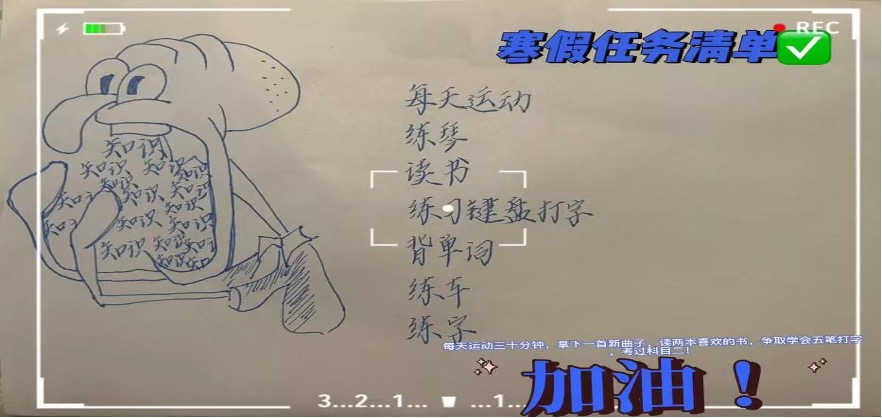 REC
寒假任务清单
每天运动
练琴
读书
练习键盘打字
背单词
练车
练字
知识
知识 知识
知识 知识
知识 知识
知识 知识 知识
知识 知识
每天运动三十分钟、拿下一首新曲子、读两本喜欢的书、争取学会五笔打字
、考过科目二！
加油！
3...2...1... ...1...